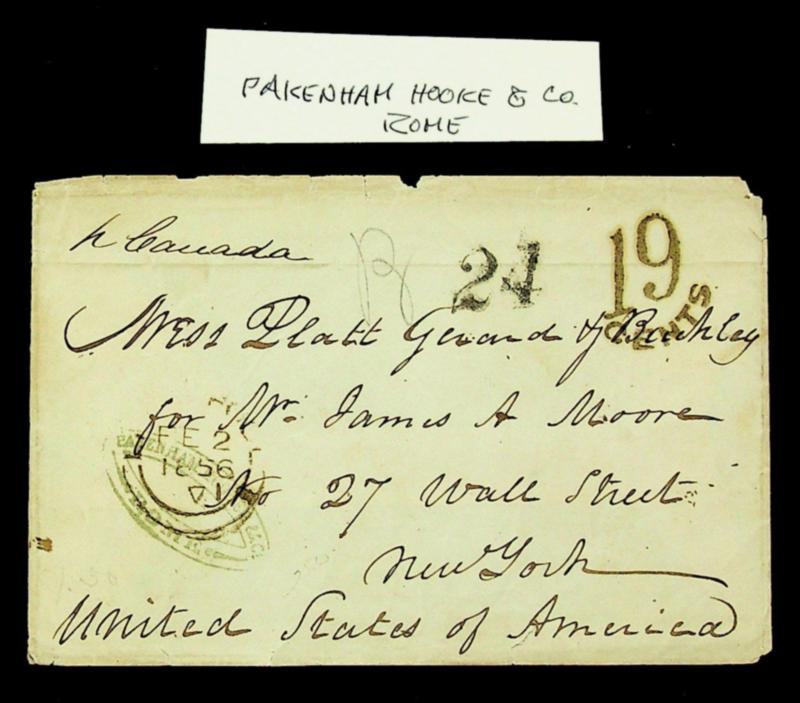 PAKENHAM HOOKE & CO.
ROME
p Canada
24
19
CENTS
Mess Platt Gerard & Buckley
for Mr. James A Moore
FE 2
1856
No 27 Wall Street
New York
United States of America
PAKENHAM & Co.
ROME